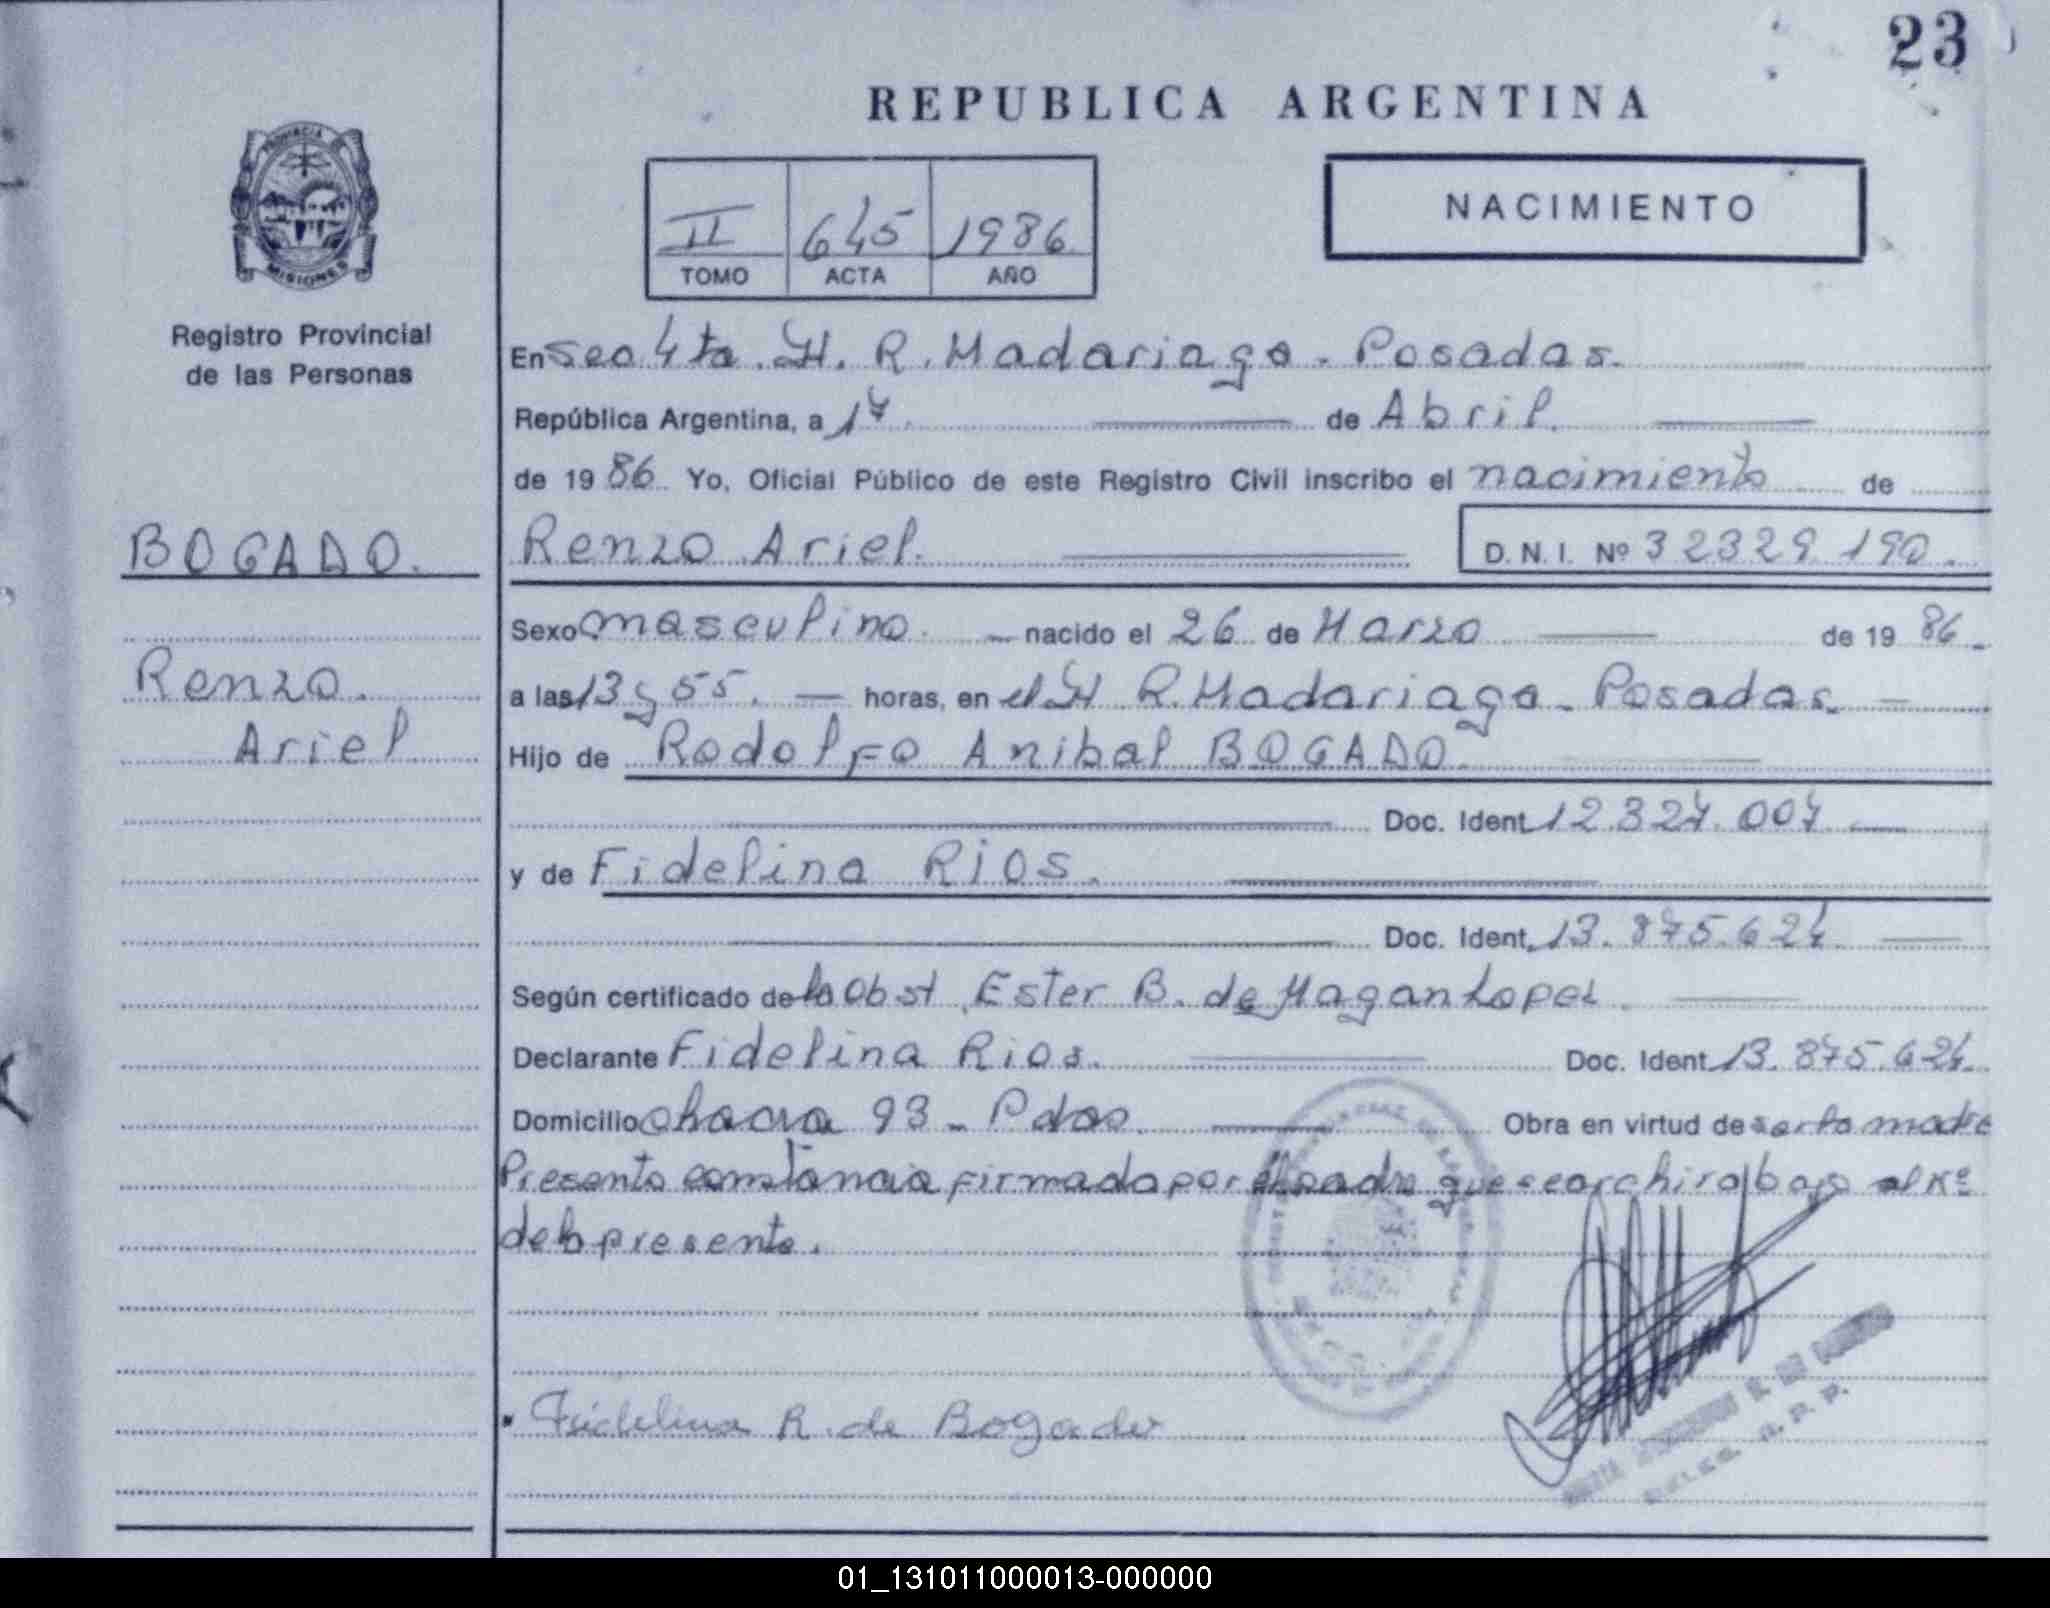 23
REPUBLICA ARGENTINA
PROVINCIA DE
MISIONES
II 645 1986
TOMO ACTA AÑO
NACIMIENTO
Registro Provincial
de las Personas
BOGADO.
Renzo
Ariel
En Sec 4ta. H. R. Madariaga - Posadas.
República Argentina, a 17 de Abril.
de 19 86 Yo, Oficial Público de este Registro Civil inscribo el nacimiento de
Renzo Ariel. D. N. I. Nº 32329190.
Sexo masculino. nacido el 26 de Marzo de 19 86
a las 13 y 55. horas, en el H R. Madariaga - Posadas.
Hijo de Rodolfo Anibal BOGADO.
Doc. Ident. 12.327.007
y de Fidelina RIOS.
Doc. Ident. 13.875.624
Según certificado de la Obst. Ester B. de Magan Lopez.
Declarante Fidelina Rios. Doc. Ident. 13.875.624
Domicilio chacra 93 - Pdas Obra en virtud de ser la madre
Presenta constancia firmada por el padre que se archiva bajo el Nº
de la presente.
Fidelina R. de Bogado
01_131011000013-000000